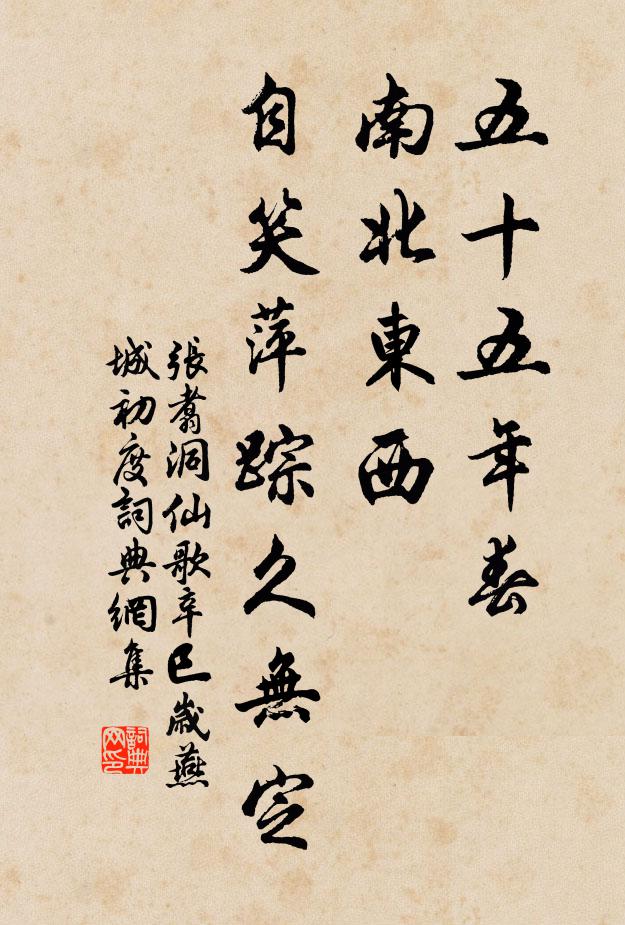 五十五年春
南北東西
自笑萍踪久無定
張翥洞仙歌辛巳歲燕
城初度詞典網集
詞典
网印